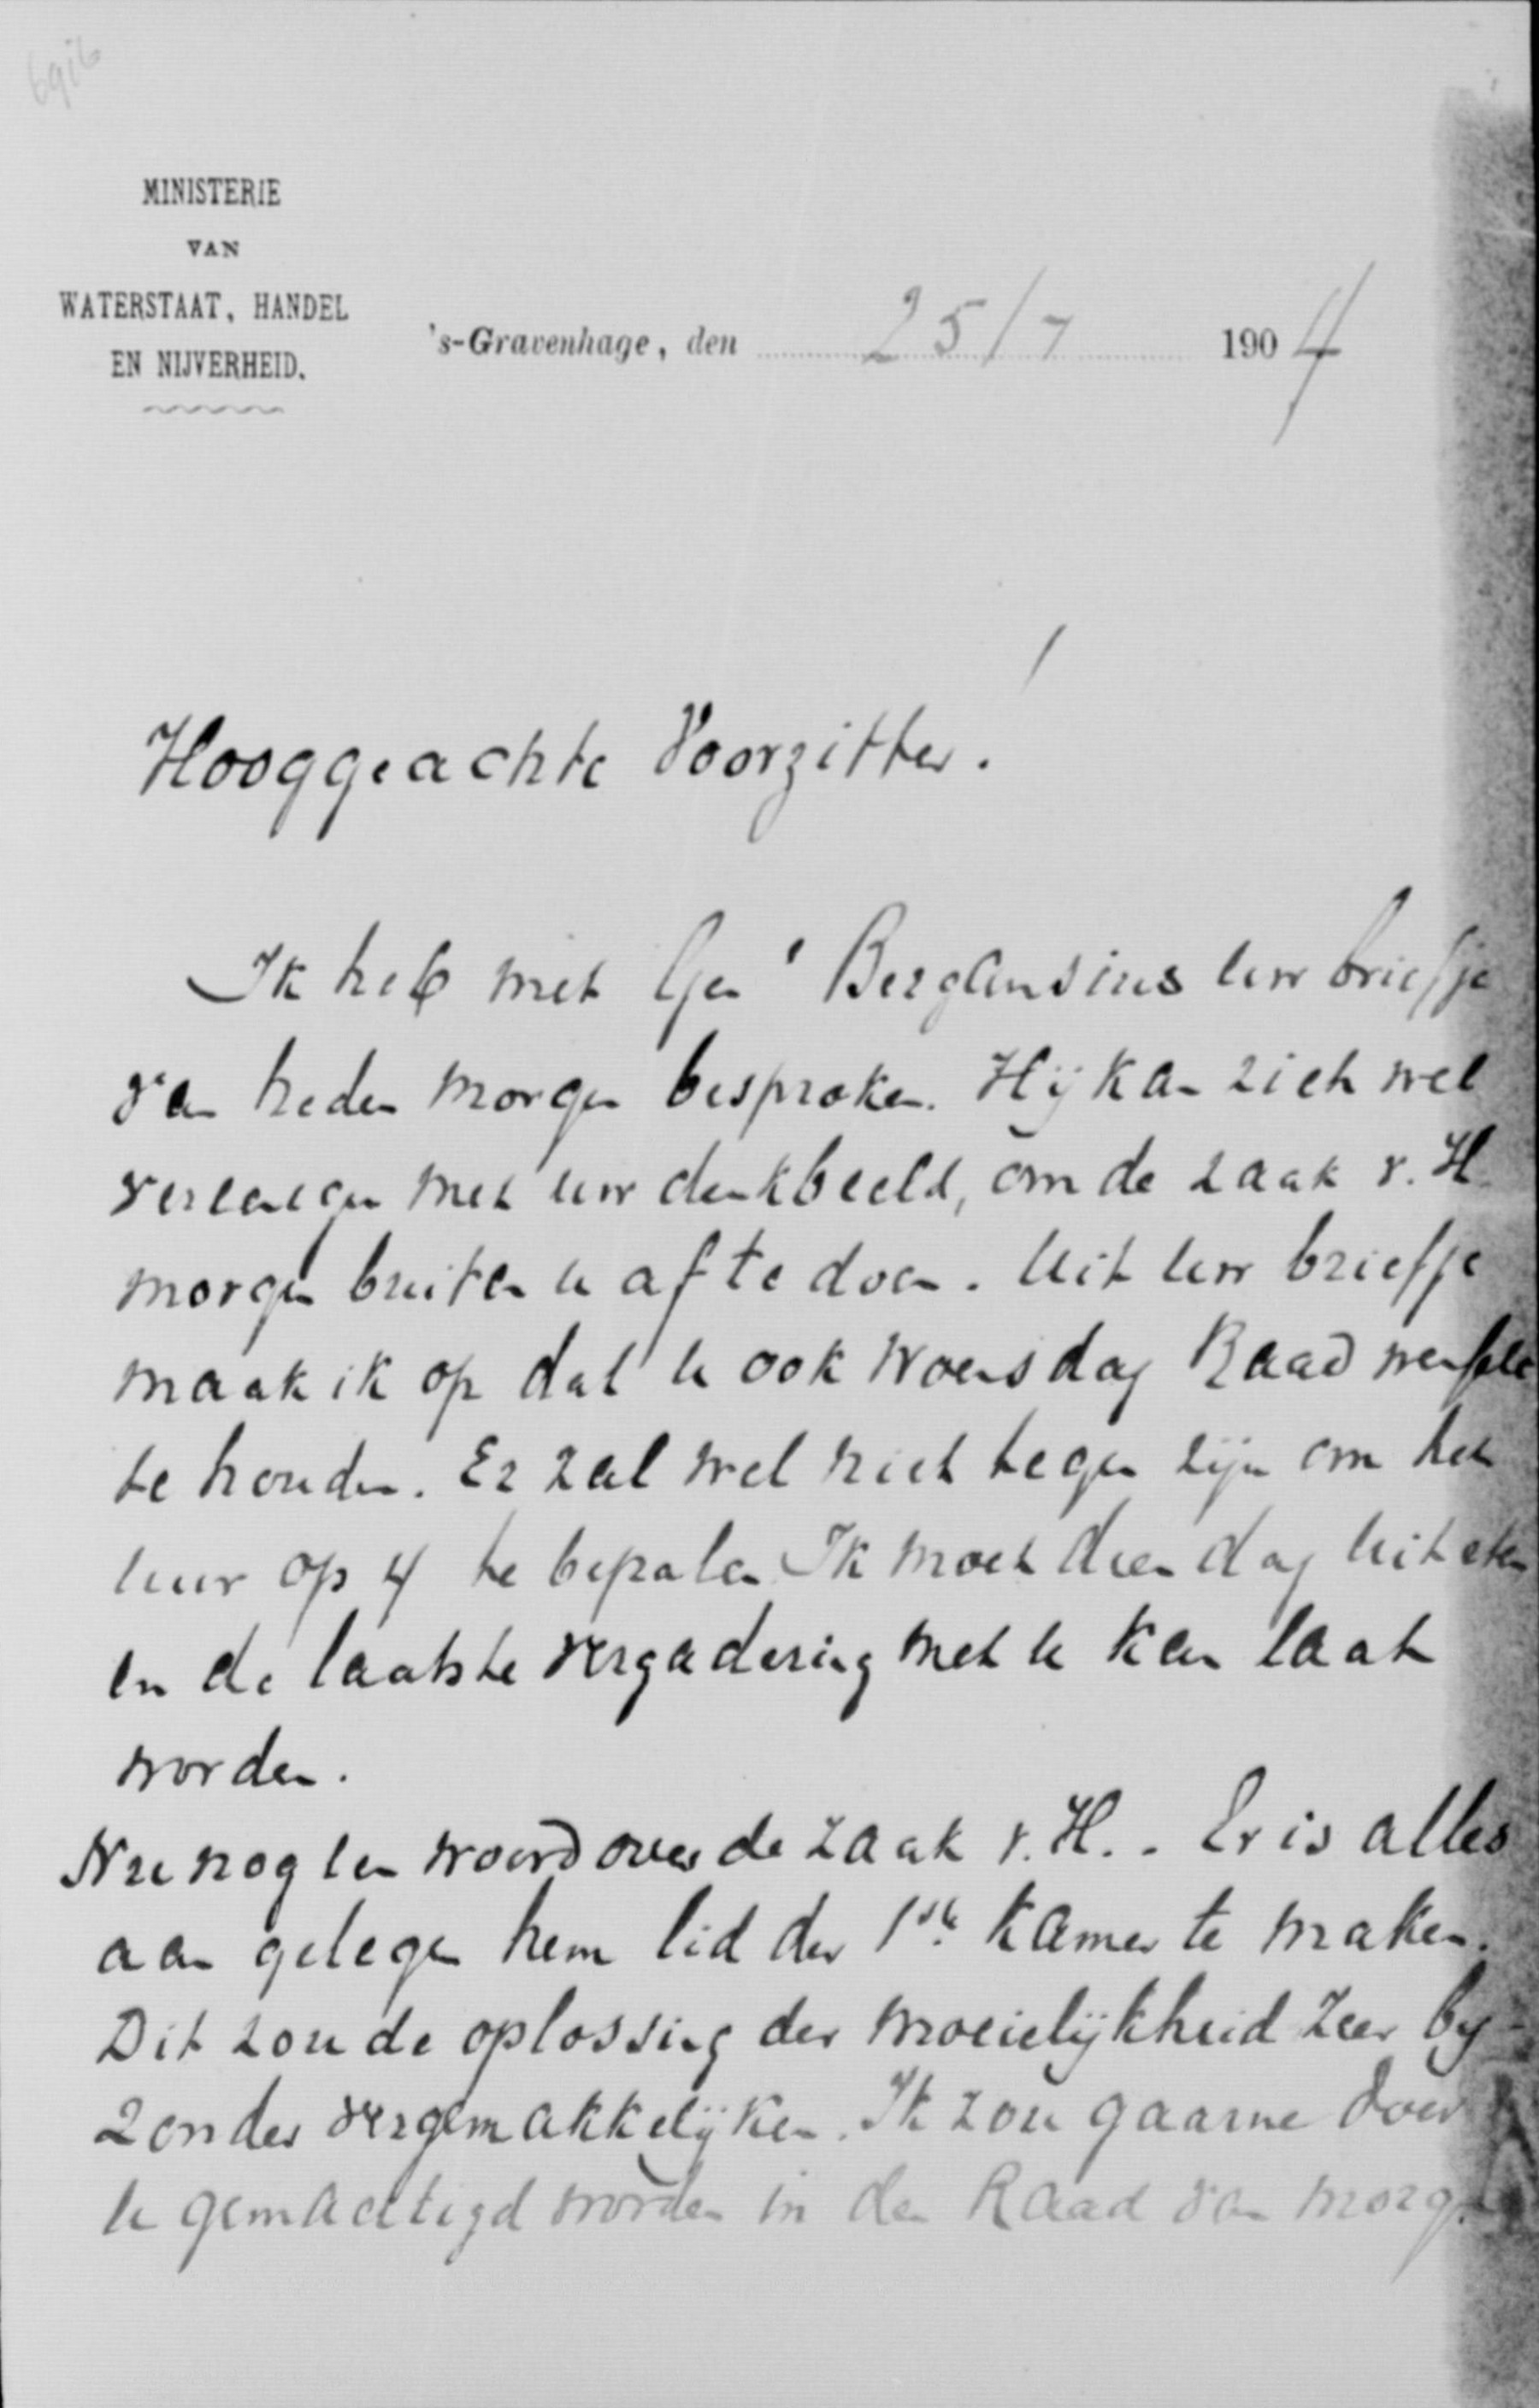 6916
MINISTERIE
VAN
WATERSTAAT, HANDEL
EN NIJVERHEID.
's-Gravenhage, den 25/7 1904
Hooggeachte Voorzitter.
Ik heb met Gen l Bergansius uw briefje
van heden morgen besproken. Hij kan zich wel
vereenigen met uw denkbeeld, om de zaak v. H.
morgen buiten u af te doen. Uit uw briefje
maak ik op dat u ook woensdag Raad
te houden. Er zal wel niets tegen zijn om het
uur op 4 te bepalen Ik moet dien dag uit eten
en de laatste vergadering met u kan laat
worden.
Nu nog een woord over de zaak v. H. . Er is alles
aan gelegen hem lid der 1ste Kamer te maken.
Dit zou de oplossing der moeielijkheid zeer by-
zonder vergemakkelijken. Ik zou gaarne door
u gemachtigd worden in den Raad van morgen